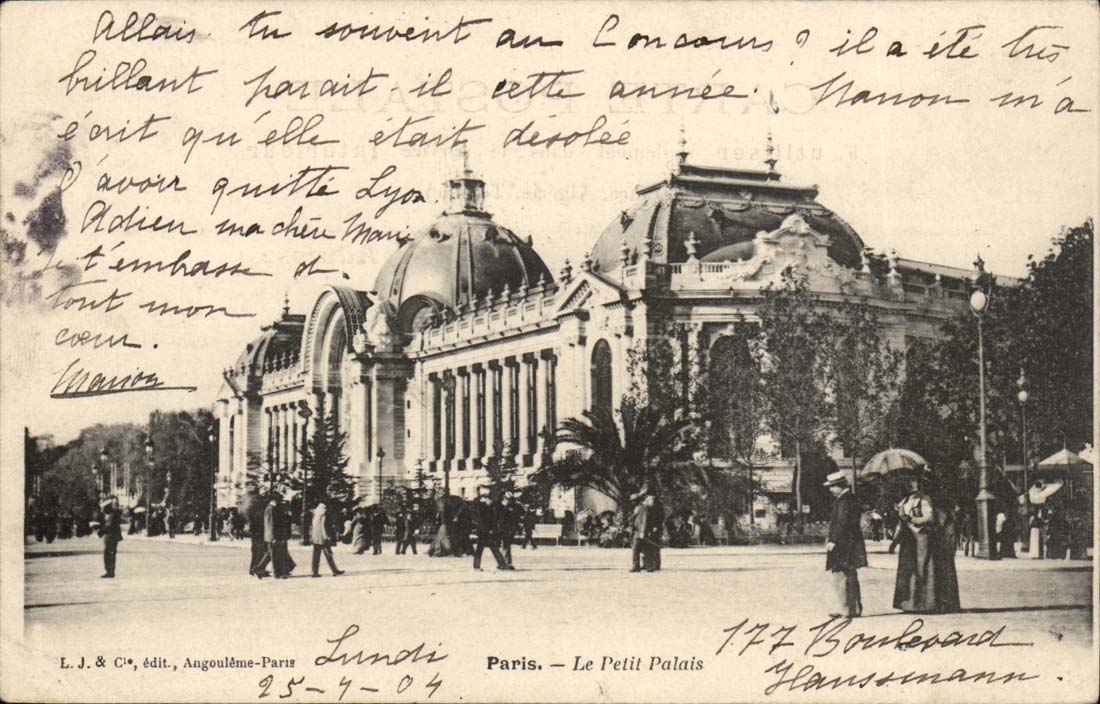 Allais tu souvent au Concours ? il a été très
brillant parait-il cette année. Manon m'a
écrit qu'elle était désolée
d'avoir quitté Lyon
Adieu ma chère Marie
Je t'embrasse de
tout mon
cœur.
Marion
L. J. & Cie, édit., Angoulême-Paris
Lundi
25-4-04
Paris. — Le Petit Palais
177 Boulevard
Haussmann.